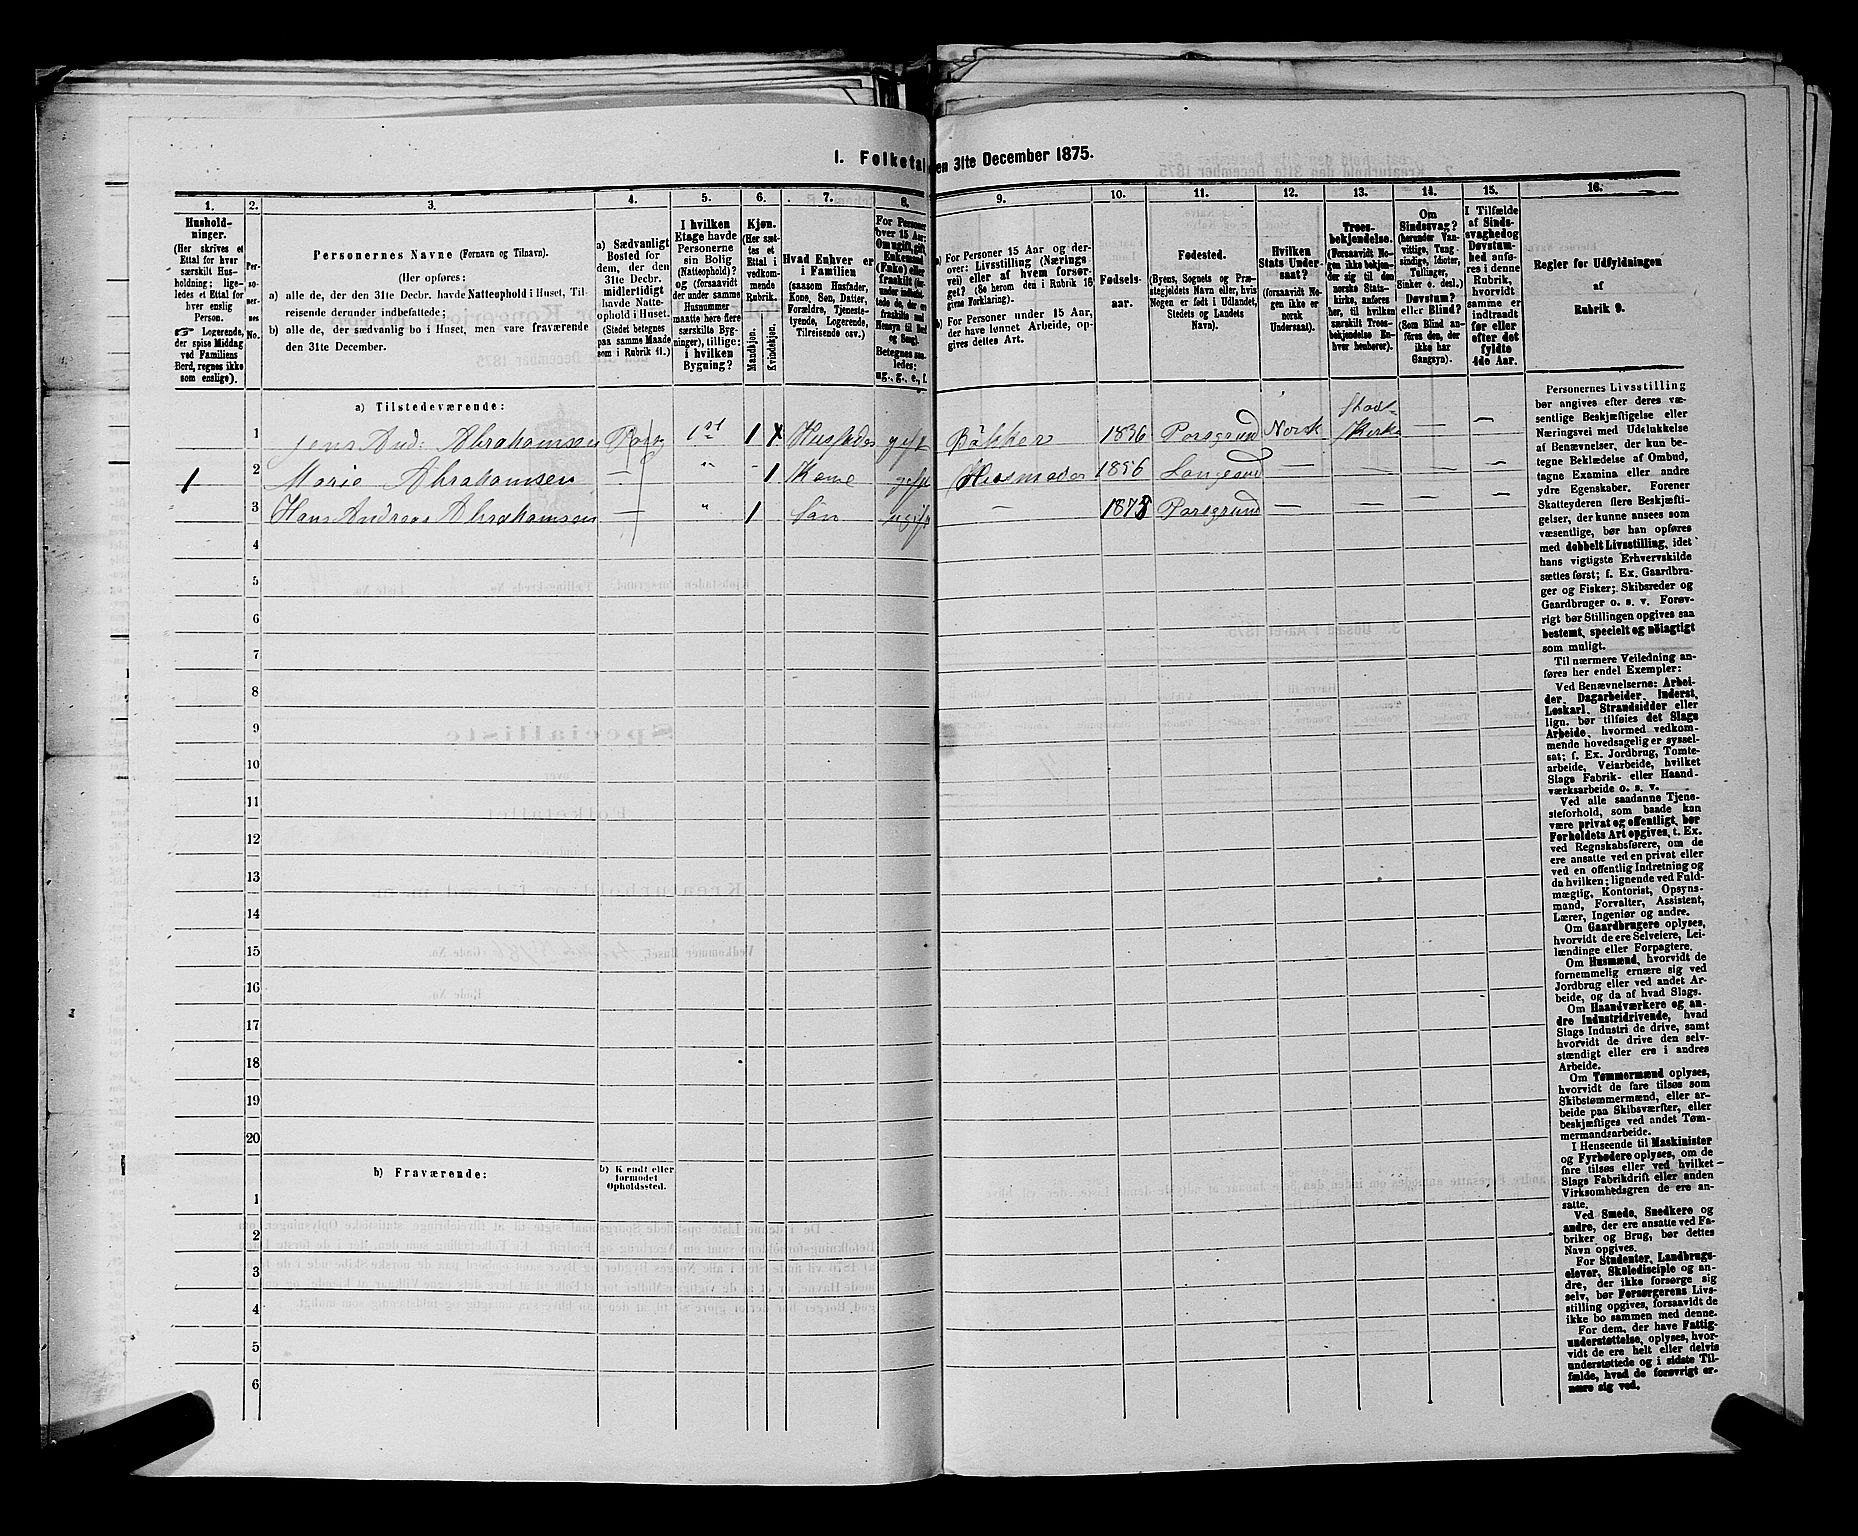 I. Folketal den 31te December 1875.
1.
2.
3.
4.
5.
6.
7.
8.
9.
10.
11.
12.
13.
14.
15.
16.
Hushold-
ninger.
(Her skrives et
Ettal for hver
særskilt Hus-
holdning; lige-
ledes et Ettal for
hver enslig
Person.
☞ Logerende,
der spise Middag
ved Familiens
Bord, regnes ikke
som enslige).
Per-
so-
ner-
nes
No.
Personernes Navne (Fornavn og Tilnavn).
(Her opføres:
a) alle de, der den 31te Decbr. havde Natteophold i Huset, Til-
reisende derunder indbefattede;
b) alle de, der sædvanlig bo i Huset, men vare fraværende
den 31te December.
a) Sædvanligt
Bosted for
dem, der den
31te Decbr.
midlertidigt
havde Natte-
ophold i Huset.
(Stedet betegnes
paa samme Maade
som i Rubrik 11.)
I hvilken
Etage havde
Personerne
sin Bolig
(Natteophold)?
og (forsaavidt
der under samme
Husnummer
maatte høre flere
særskilte Byg-
ninger), tillige:
i hvilken
Bygning?
Kjøn.
(Her sæt-
tes et
Ettal i
vedkom-
mende
Rubrik.
Mandkjøn.
Kvindekjøn.
Hvad Enhver er
i Familien
(saasom Husfader,
Kone, Søn, Datter,
Forældre, Tjeneste-
tyende, Logerende,
Tilreisende osv.)
For Personer
over 15 Aar:
Om ugift, gift
Enkemand
(Enke) eller
fraskilt
Betegnes saa-
ledes:
ug., g., e., f.
a) For Personer 15 Aar og der-
over: Livsstilling (Nærings-
vei) eller af hvem forsør-
get? (Se herom den i Rubrik 16
givne Forklaring).
b) For Personer under 15 Aar,
der have lønnet Arbeide, op-
gives dettes Art.
Fødsels-
aar.
Fødested.
(Byens, Sognets og Præ-
stegjeldets Navn eller, hvis
Nogen er født i Udlandet,
Stedets og Landets
Navn).
Hvilken
Stats Under-
saat?
(forsaavidt No-
gen ikke er
norsk
Undersaat).
Troes-
bekjendelse.
(Forsaavidt No-
gen ikke bekjen-
der sig til den
norske Stats-
kirke, anføres
her, til hvilken
særskilt Troes-
bekjendelse En-
hver henhører).
Om
Sindssvag?
(herunder Van-
vittige, Tung-
sindige, Idioter,
Tullinger,
Sinker o. desl.)
Døvstum?
eller Blind?
(Som Blind an-
føres den, der
ikke har
Gangsyn).
I Tilfælde
af Sinds-
svaghed og
Døvstum-
hed anfø-
res i denne
Rubrik,
hvorvidt
samme er
indtraadt
før eller
efter det
fyldte
4de Aar.
Regler for Udfyldningen
af
Rubrik 9.
a) Tilstedeværende:
1 Jens And: Abrahamsen Pors 1st 1 Husfader gift Bäkker 1836 Porsgrund Norsk Stads Kirke — —
1 2 Marie Abrahamsen — " 1 Kone gift Husmoder 1856 Langesund — — — —
3 Hans Andreas Abrahamsen — " 1 Søn ugift — 1875 Porsgrund — — — —
4
5
6
7
8
9
10
11
12
13
14
15
16
17
18
19
20
b) Fraværende:
b) Kjendt eller
formodet
Opholdssted.
1
2
3
4
5
6
Personernes Livsstilling
bør angives efter deres væ-
sentlige Beskjæftigelse eller
Næringsvei med Udelukkelse
af Benævnelser, der kun be-
tegne Beklædelse af Ombud,
tagne Examina eller andre
ydre Egenskaber. Forener
Skatteyderen flere Beskjæfti-
gelser, der kunne ansees som
væsentlige, bør han opføres
med dobbelt Livsstilling, idet
hans vigtigste Erhvervskilde
sættes først; f. Ex. Gaardbru-
ger og Fisker; Skibsreder og
Gaardbruger o. s. v. Forøv-
rigt bør Stillingen opgives saa
bestemt, specielt og nöiagtigt
som muligt.
Til nærmere Veiledning an-
føres her endel Exempler:
Ved Benævnelserne: Arbei-
der, Dagarbeider, Inderst,
Løskarl, Strandsidder eller
lign. bør tilføies det Slags
Arbeide, hvormed vedkom-
mende hovedsagelig er syssel-
sat; f. Ex. Jordbrug, Tomte-
arbeide, Veiarbeide, hvilket
Slags Fabrik- eller Haand-
værksarbeide o. s. v.
Ved alle saadanne Tjene-
steforhold, som baade kan
være privat og offentligt, bør
Forholdets Art opgives, t. Ex.
ved Regnskabsførere, om de
ere ansatte ved en privat eller
ved en offentlig Indretning og
da hvilken; lignende ved Fuld-
mægtig, Kontorist, Opsyns-
mand, Forvalter, Assistent,
Lærer, Ingeniør og andre.
Om Gaardbrugere oplyses,
hvorvidt de ere Selveiere, Lei-
lændinge eller Forpagtere.
Om Husmænd, hvorvidt de
fornemmelig ernære sig ved
Jordbrug eller ved andet Ar-
beide, og da af hvad Slags.
Om Haandværkere og an-
dre Industridrivende, hvad
Slags Industri de drive, samt
hvorvidt de drive den selv-
stændigt eller ere i andres
Arbeide.
Om Tømmermænd oplyses,
hvorvidt de fare tilsøs som
Skibstømmermænd, eller ar-
beide paa Skibsværfter, eller
beskjæftiges ved andet Tøm-
mermandsarbeide.
I Henseende til Maskinister
og Fyrbødere oplyses, om de
fare tilsøs eller ved hvilket
Slags Fabrikdrift eller anden
Virksomhedsgren de ere an-
satte.
Ved Smede, Snedkere og
andre, der ere ansatte ved Fa-
briker og Brug, bør dettes
Navn opgives.
For Studenter, Landbrugs-
elever, Skoledisciple og an-
dre, der ikke forsørge sig
selv, bør Forsørgerens Livs-
stilling opgives, forsaavidt de
ikke bo sammen med denne.
For dem, der have Fattig-
understøttelse, oplyses, hvor-
vidt de ere helt eller delvis
understøttede og i sidste Til-
fælde, hvad de forøvrigt er-
nære sig ved.